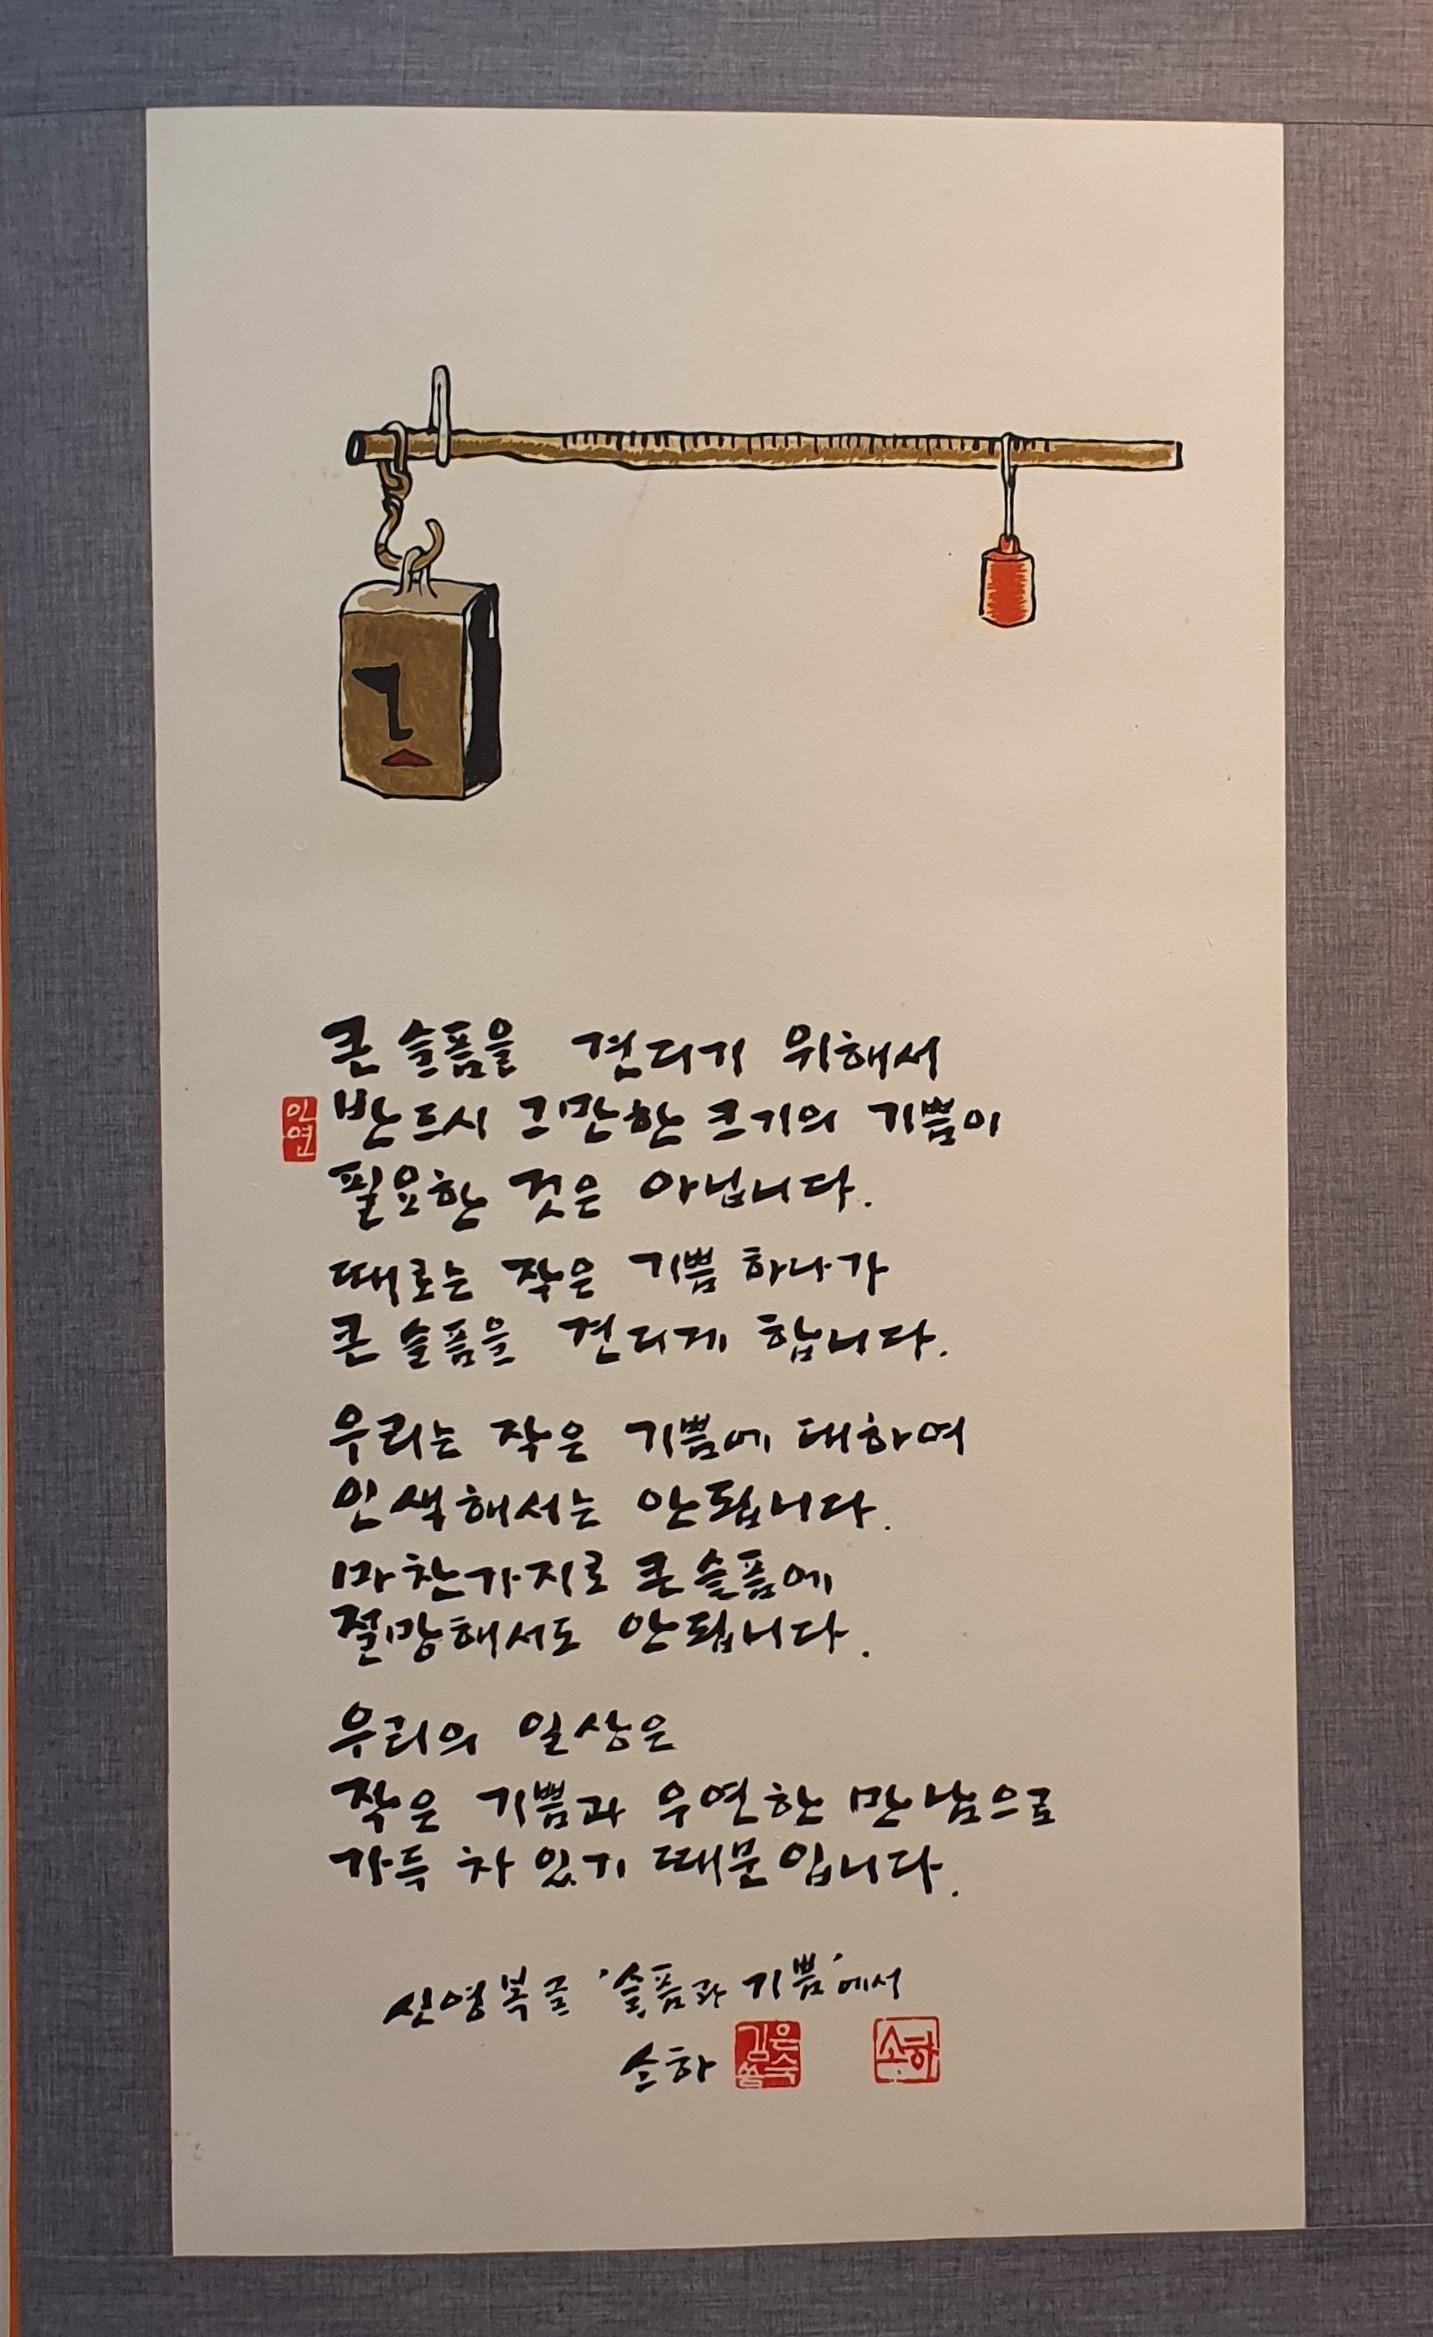 큰 슬픔을 견디기 위해서
인연
반드시 그만한 크기의 기쁨이
필요한 것은 아닙니다.
때로는 작은 기쁨 하나가
큰 슬픔을 견디게 합니다.
우리는 작은 기쁨에 대하여
인색해서는 안됩니다.
마찬가지로 큰 슬픔에
절망해서도 안됩니다.
우리의 일상은
작은 기쁨과 우연한 만남으로
가득 차 있기 때문입니다.
신영복 글 '슬픔과 기쁨'에서
소하 김은숙 소하